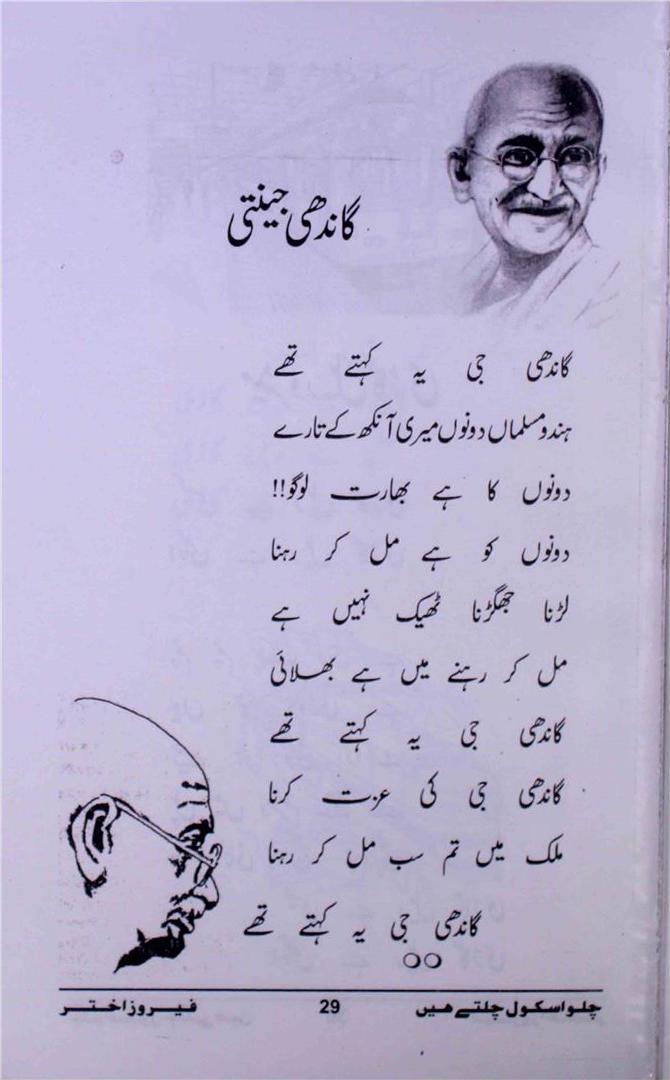 گاندھی جینتی
گاندھی جی یہ کہتے تھے
ہندو مسلماں دونوں میری آنکھ کے تارے
دونوں کا ہے بھارت لوگو!!
دونوں کو ہے مل کر رہنا
لڑنا جھگڑنا ٹھیک نہیں ہے
مل کر رہنے میں ہے بھلائی
گاندھی جی یہ کہتے تھے
گاندھی جی کی عزت کرنا
ملک میں تم سب مل کر رہنا
گاندھی جی یہ کہتے تھے
چلو اسکول چلتے ہیں 29 فیروز اختر